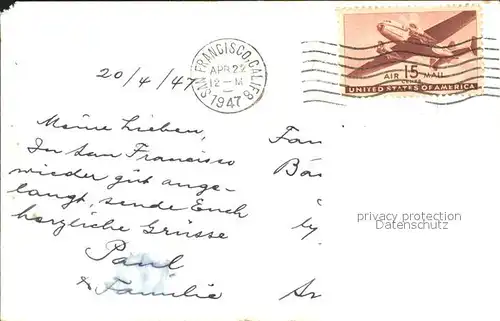 20/4/47
SAN FRANCISCO, CALIF. 8
APR 22
12 – M
1947
AIR 15 MAIL
CENTS
UNITED STATES OF AMERICA
Meine Lieben,
In San Francisco
wieder gut ange-
langt, sende Euch
herzliche Grüsse
Paul
& Familie
Fam
Bä
privacy protection
Datenschutz